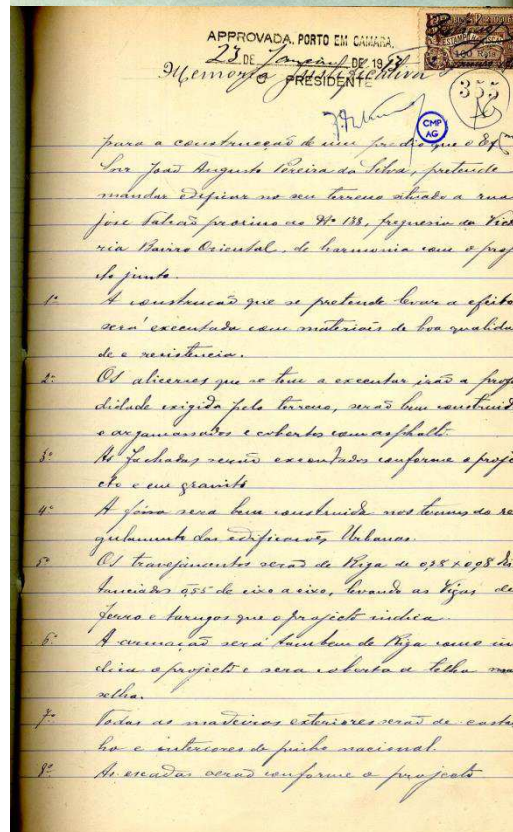 APPROVADA. PORTO EM CAMARA,
23 DE Janeiro DE 19
O PRESIDENTE
Memoria Justificativa
355
AG
CMP
AG
para a construcção de um predio que o Ex
Snr João Augusto Pereira da Silva, pretende
mandar edificar no seu terreno situado a rua
José Falcão proximo ao Nº 138, freguesia da Victo
ria Bairro Ocidental, de harmonia com o proje
cto junto.
1º A construcão que se pretende levar a efeito
será executada com materiais de boa qualida
de e resistencia.
2º Os alicerces que se tem a executar irão a profun
didade exigida pelo terreno, serão bem construid
e argamassados e cobertos com asphalto.
3º As fachadas serão executadas conforme o proje
cto e em granito
4º A fossa sera bem construida nos termos do re
gulamento das edificações Urbanas.
5º Os travejamentos serão de Riga de 0,28 x 0,08 dis
tanciados 0,55 de eixo a eixo, levando as Vigas de
ferro e tarugos que o projecto indica.
6º A armação será tambem de Riga como in
dica o projecto e sera coberta a telha mar
selha.
7º Todas as madeiras exteriores serão de casta
ho e interiores de pinho nacional.
8º As escadas serão conforme o projecto